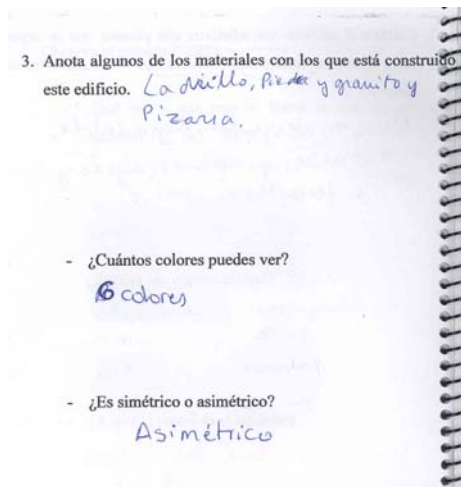 3. Anota algunos de los materiales con los que está construido
este edificio. La drillo, Piedra y granito y
Pizarra.
- ¿Cuántos colores puedes ver?
6 colores
- ¿Es simétrico o asimétrico?
Asimétrico